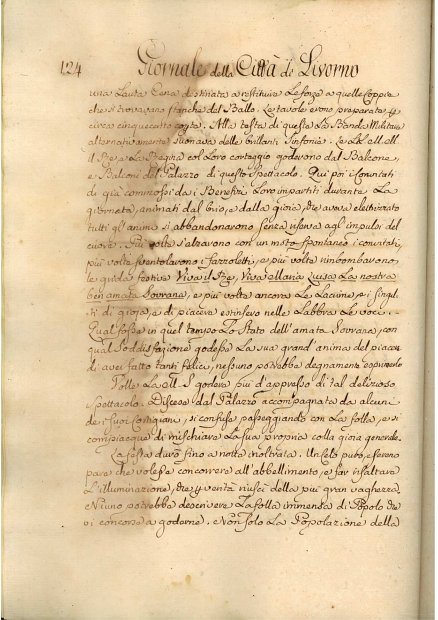 124 Giornale della Città di Livorno
una Lauta Cena destinata a restituire Le forze a quelle Coppie
che si trovavano stanche del Ballo. Le tavole erono preparate p
circa cinquecento coperte. Alla testa di questa La Banda Militare
alternativamente suonava delle brillanti Sinfonie. Le LL. MM.
il Re, e La Regina col Loro corteggio goderono dal Balcone,
e Balconi del Palazzo di questo Spettacolo. Qui poi i Convitati
di già commossi dai Benefizi Loro impartiti durante La
giornata, animati dal brio, e dalla gioia, che aveva elettrizzato
tutti gl' animi si abbandonarono senza riserva agl' impulsi del
cuore. Più volte s'alzarono con un moto spontaneo i convitati,
più volte sventolarono i fazzoletti, e più volte rimbombarono
le grida festive Viva il Re, Viva Maria Luisa La nostra
ben amata Sovrana, e più volte ancora Le Lacrime, e i singul-
ti di gioja, e di piacere estinsero nelle Labbra Le voci.
Qual fosse in quel tempo Lo Stato dell'amata Sovrana, con
qual Soddisfazione godesse La sua grand'anima del piacere
di aver fatto tanti felici, nessuno potrebbe degnamente esprimerlo
Volle La M. S. godere più d'appresso di tal delizioso
spettacolo. Discesa dal Palazzo accompagnata da alcuni
de' suoi Cortigiani, si confuse passeggiando con La folla, e si
compiacque di mischiare La sua propria colla gioia generale.
La festa durò fino a notte inoltrata. Un Cielo puro, e sereno
parve che volesse concorrere all'abbellimento, e far risaltare
L'illuminazione, che p verità riuscì della più gran vaghezza.
Niuno potrebbe descrivere La folla immensa di Popolo che
vi concorse a goderne. e Non solo La Popolazione della